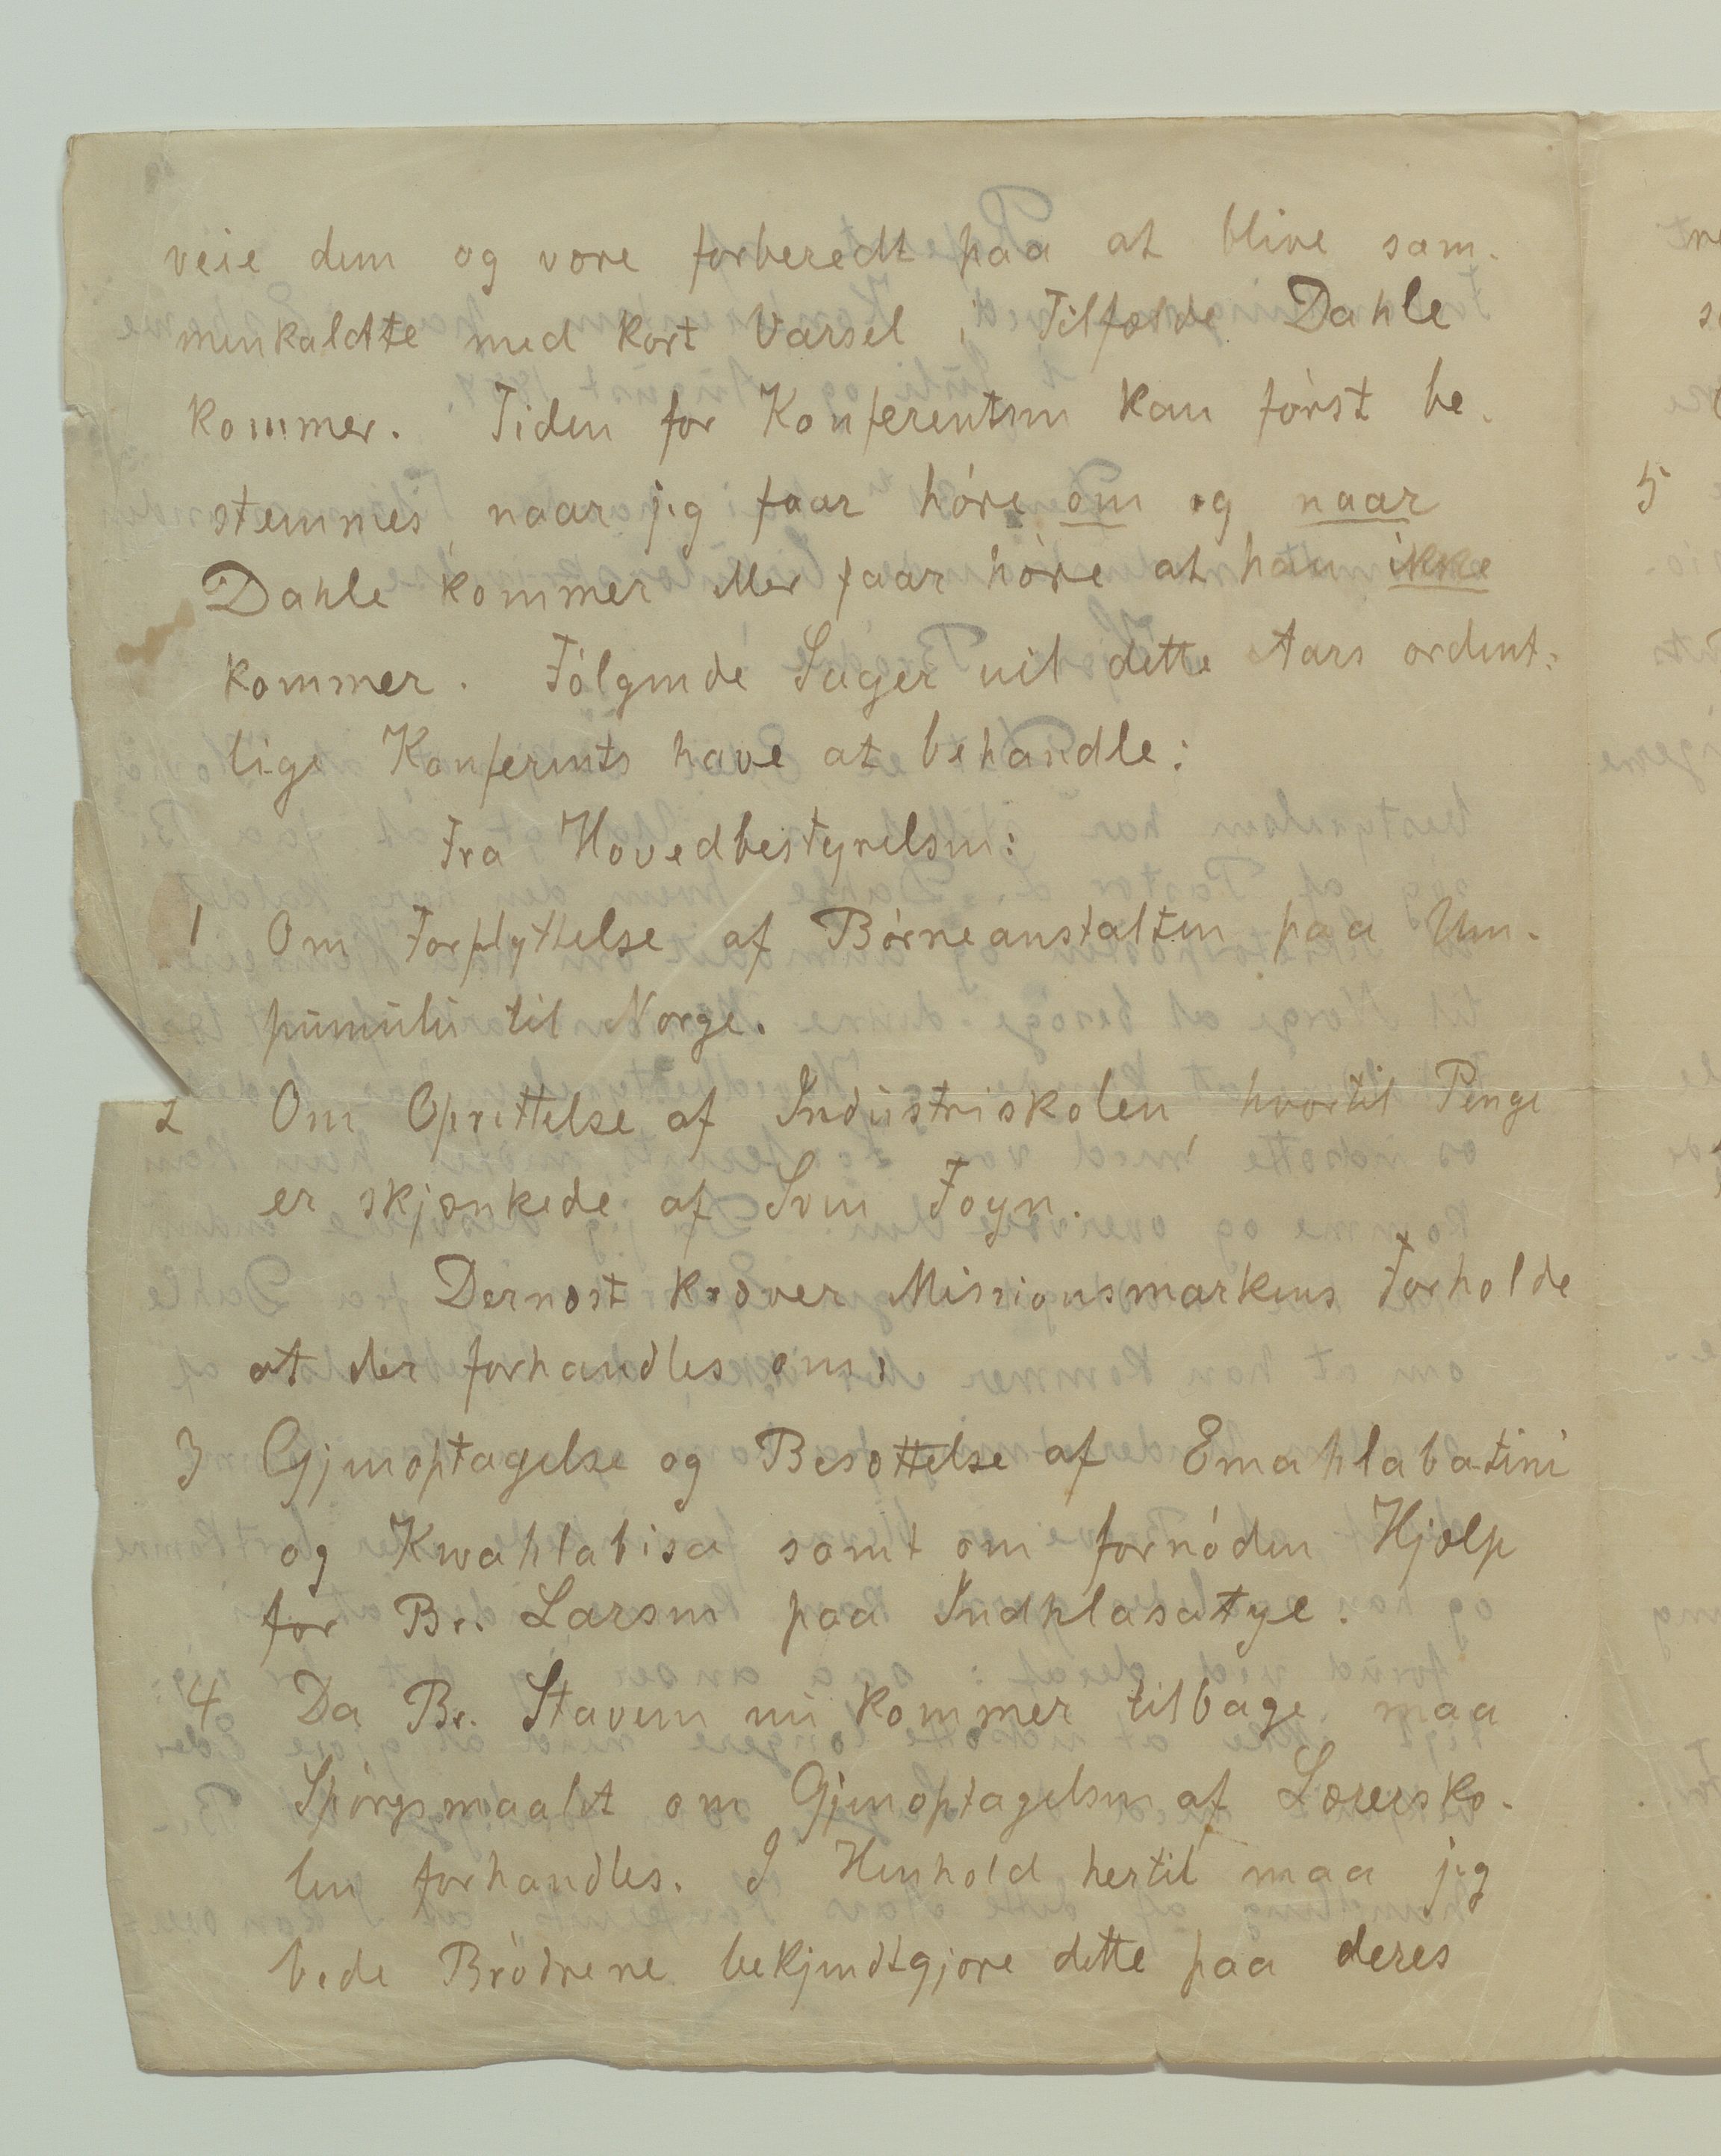 veie dem og være forberedt paa at blive sam-
menkaldte med kort Varsel i Tilfælde Dahle
kommer. Tiden for Konferentsen kan først be-
stemmes, naar jeg faar høre om og naar
Dahle kommer eller faar høre at han ikke
kommer. Følgende Sager vil dette Aars ordent-
lige Konferents have at behandle:
Fra Hovedbestyrelsen:
1 Om Forflyttelse af Børneanstalten paa Um-
pumulu til Norge.
2 Om Oprettelse af Industriskolen, hvortil Penge
er skjænkede af Sven Foyn.
Dernæst kræver Missionsmarkens Forholde
at der forhandles om:
3 Gjenoptagelse og Besættelse af Emahlabatini
og Kwahlabisa samt om fornøden Hjælp
for Br. Larsen paa Indhlasatye.
4 Da Br. Stavem nu kommer tilbage, maa
Spørgsmaalet om Gjenoptagelsen af Læresko-
len forhandles. I Henhold hertil maa jeg
bede Brødrene bekjendtgjøre dette paa deres
5